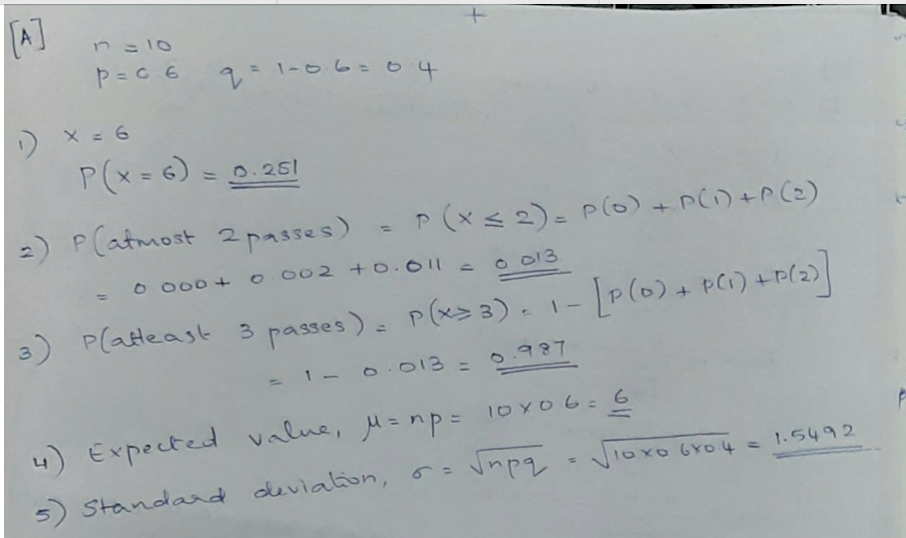 [A]
n = 10
p = 0.6 q = 1-0.6 = 0.4
1) x = 6
P(x = 6) = 0.251
2) P(atmost 2 passes) = P(x ≤ 2) = P(0) + P(1) + P(2)
= 0.000 + 0.002 + 0.011 = 0.013
3) P(atleast 3 passes) = P(x ≥ 3) = 1 - [P(0) + P(1) + P(2)]
= 1 - 0.013 = 0.987
4) Expected value, μ = np = 10 × 0.6 = 6
5) Standard deviation, σ = √npq = √10×0.6×0.4 = 1.5492